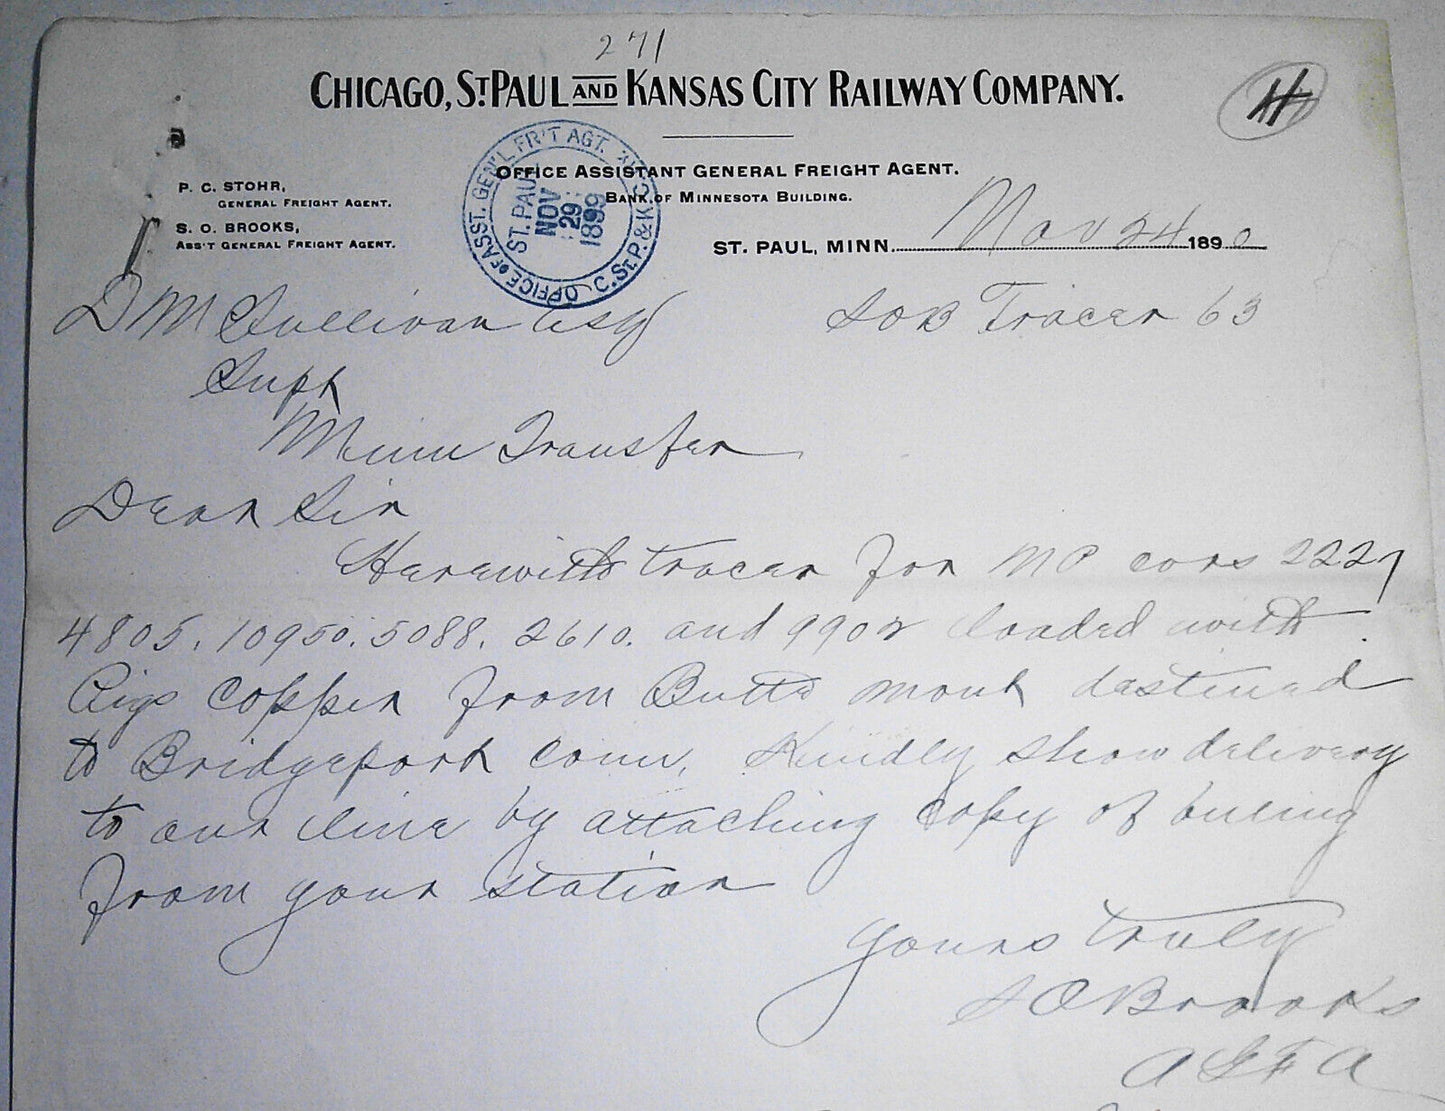 271
CHICAGO, ST. PAUL AND KANSAS CITY RAILWAY COMPANY.
H
OFFICE ASSISTANT GENERAL FREIGHT AGENT.
BANK OF MINNESOTA BUILDING.
P. C. STOHR,
GENERAL FREIGHT AGENT.
S. O. BROOKS,
ASS'T GENERAL FREIGHT AGENT.
OFFICE OF ASST. GEN'L FR'T AGT. C. ST. P. & K. C. RY
ST. PAUL
NOV
29
1899
ST. PAUL, MINN. Nov 24 1890
D M Sullivan Esq
SOB Tracer 63
Supt
Minn Transfer
Dear Sir
Herewith tracer for MP cars 2227
4805. 10950. 5088. 2610. and 9902 loaded with
Pigs Copper from Butte Mont destined
to Bridgeport Conn. Kindly show delivery
to our line by attaching copy of billing
from your station
Yours truly
S O Brooks
A G F A